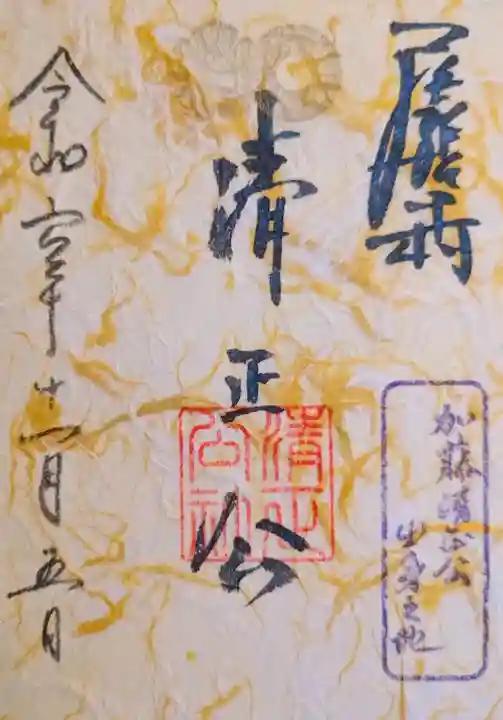 清正公
清正
公
加藤清正公
之地
令和六年十一月五日